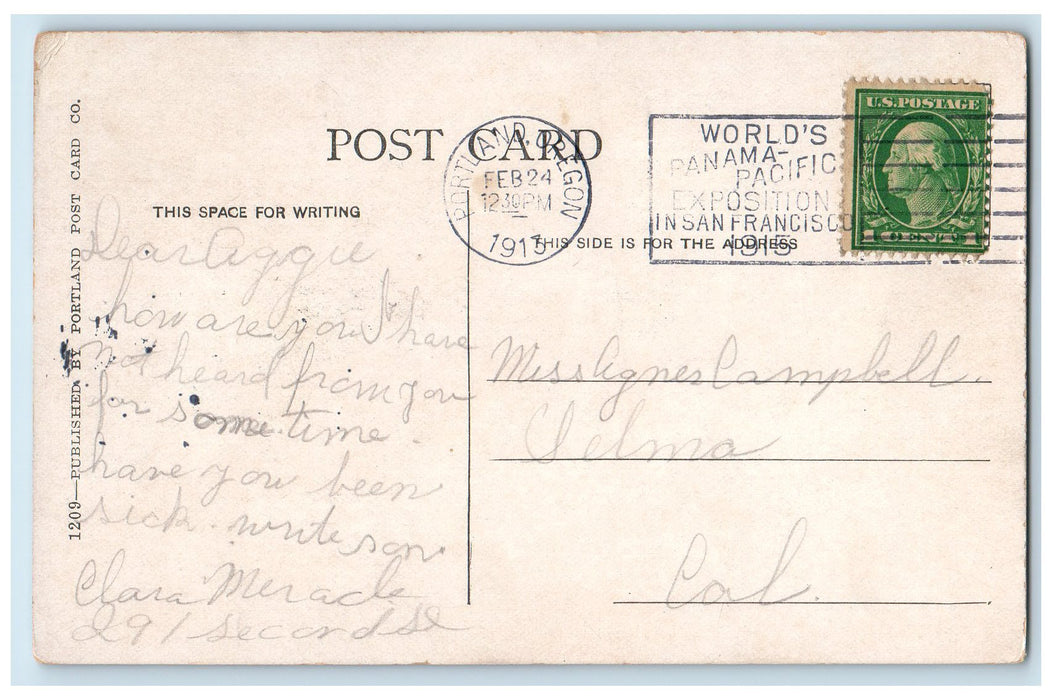 POST CARD
PORTLAND, OREGON
FEB 24
12 30 PM
1913
WORLD'S
PANAMA-
PACIFIC
EXPOSITION
IN SAN FRANCISCO
1915
U.S. POSTAGE
1 CENT 1
THIS SPACE FOR WRITING
THIS SIDE IS FOR THE ADDRESS
1209—PUBLISHED BY PORTLAND POST CARD CO.
Dear Aggie
how are you I have
not heard from you
for some time.
have you been
sick. write son.
Clara Meracle
291 Second St
Miss Agnes Campbell.
Selma
Cal.